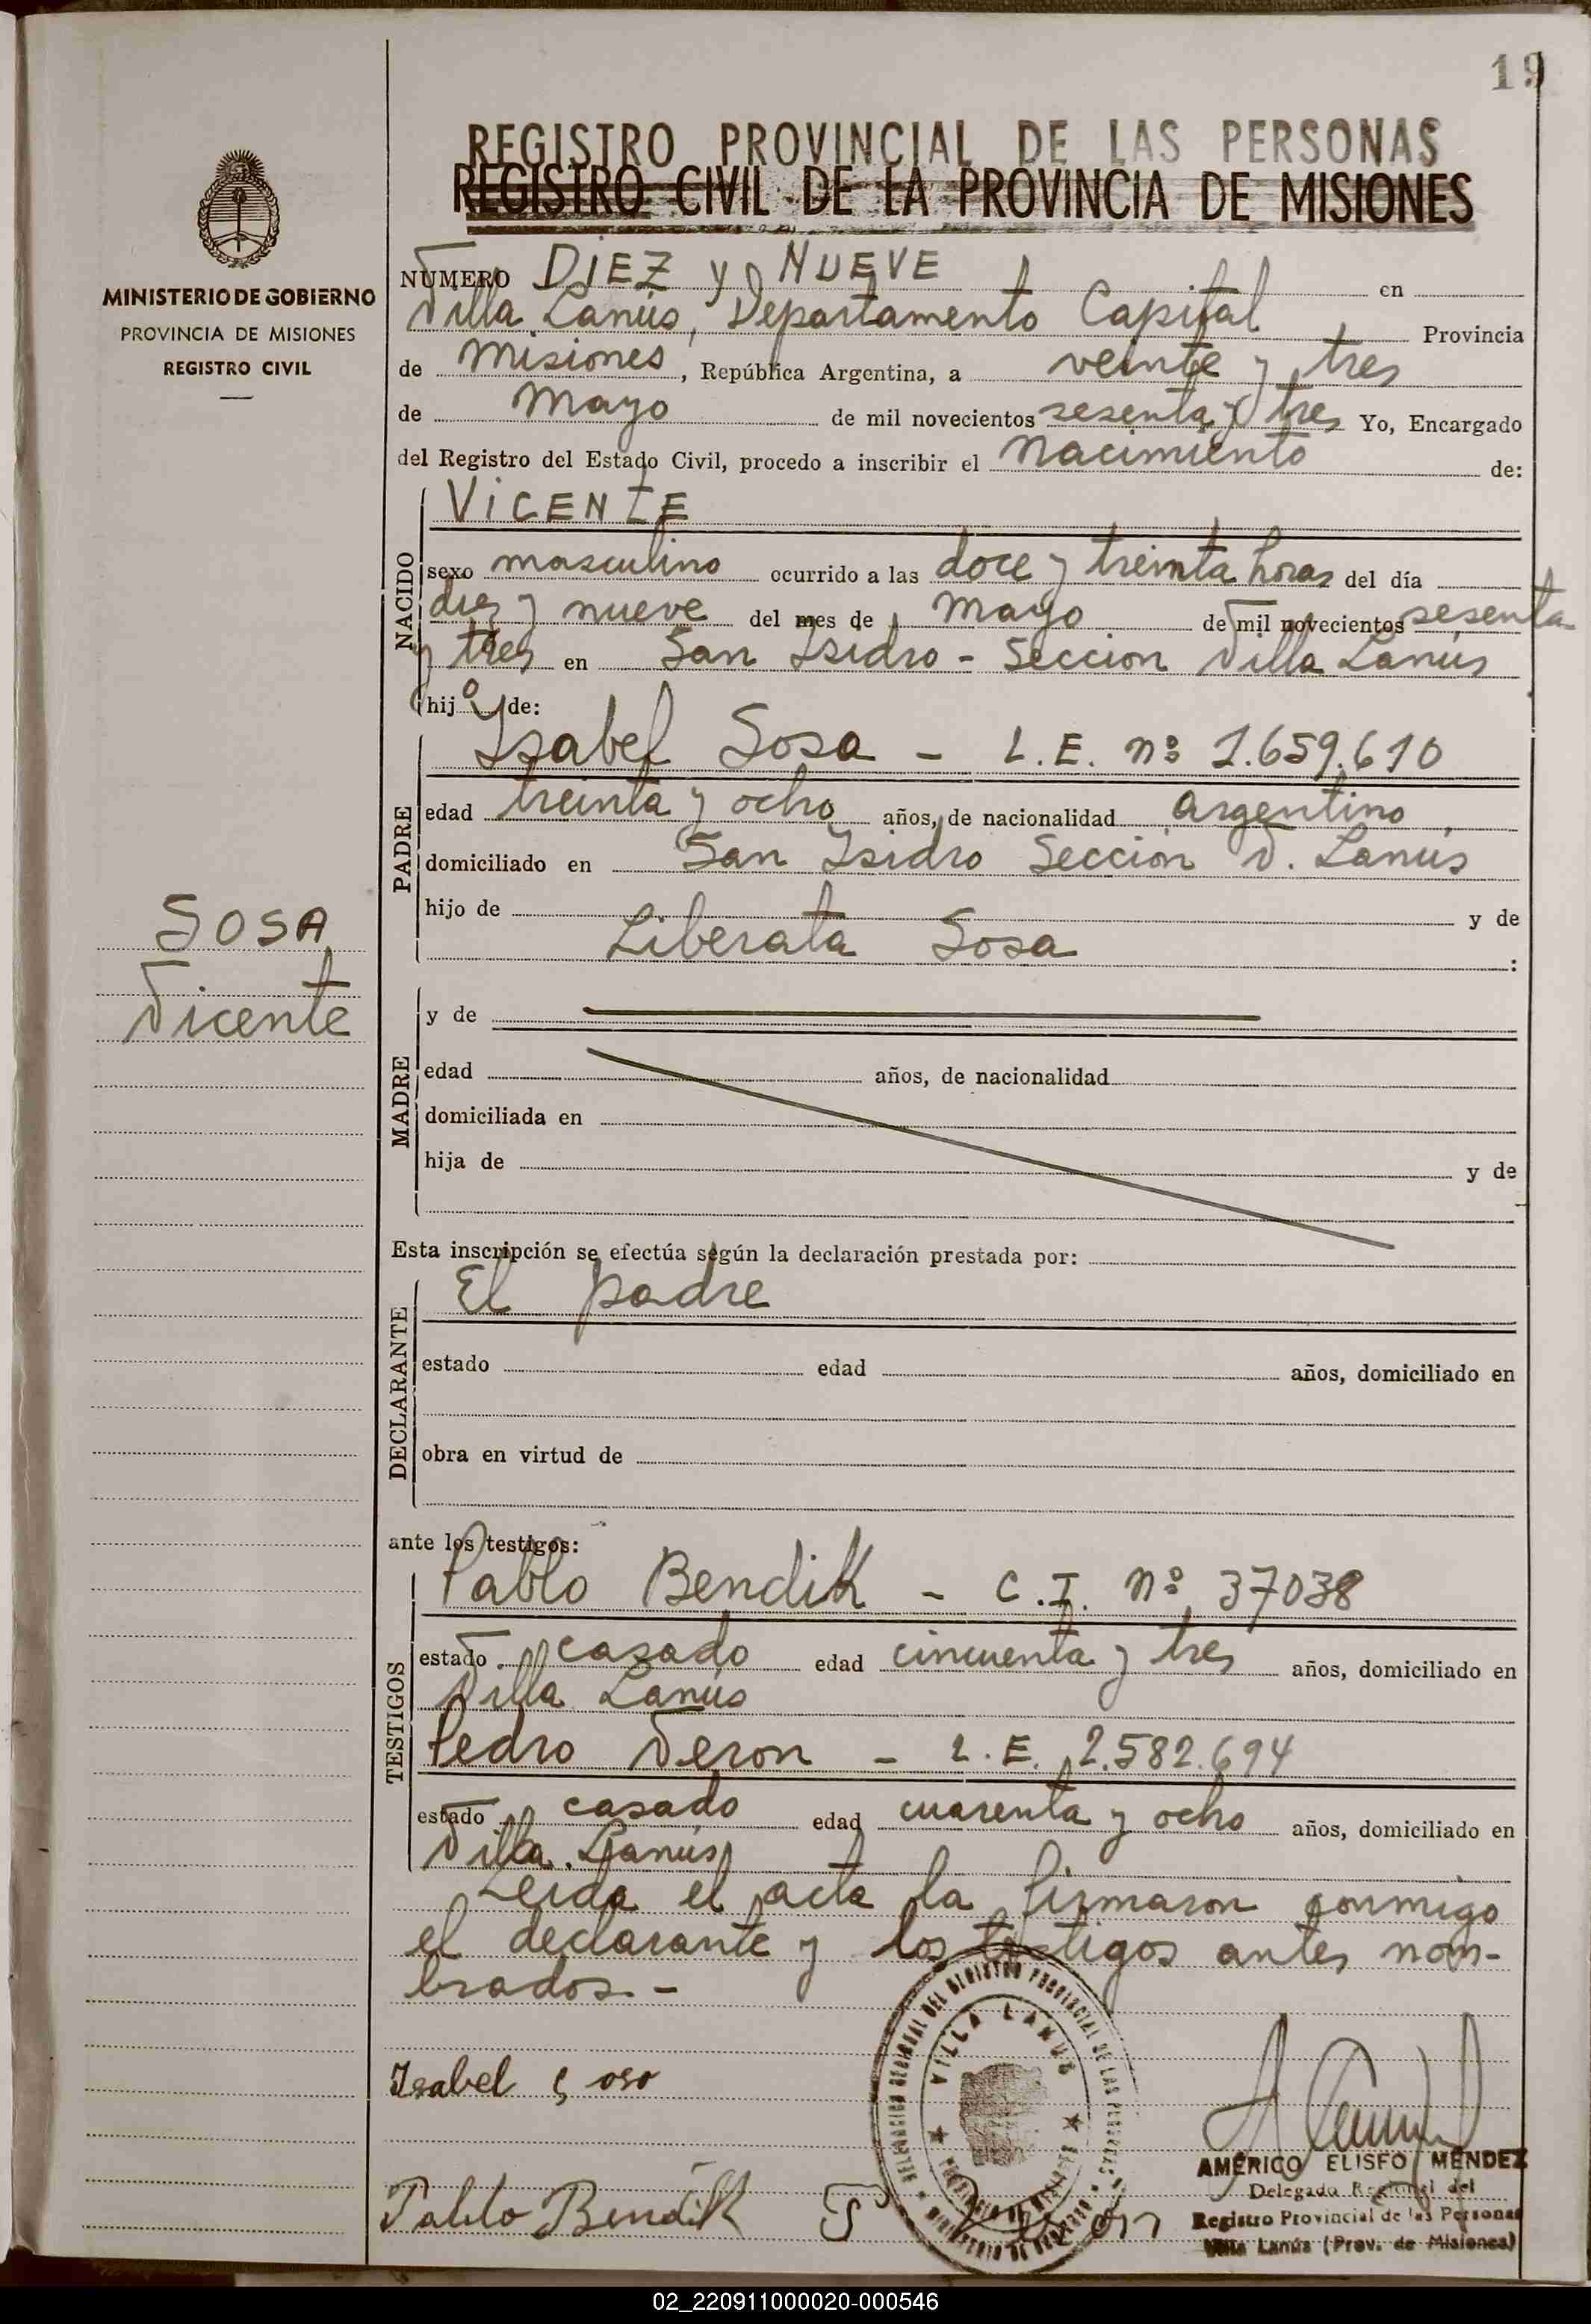 19
REGISTRO PROVINCIAL DE LAS PERSONAS
REGISTRO CIVIL DE LA PROVINCIA DE MISIONES
MINISTERIO DE GOBIERNO
PROVINCIA DE MISIONES
REGISTRO CIVIL
NUMERO DiEZ y NUEVE en
Villa Lanús, Departamento Capital Provincia
de Misiones, República Argentina, a veinte y tres
de Mayo de mil novecientos sesenta y tres Yo, Encargado
del Registro del Estado Civil, procedo a inscribir el Nacimiento de:
NACIDO
ViCENTE
sexo masculino ocurrido a las doce y treinta horas del día
diez y nueve del mes de Mayo de mil novecientos sesenta
y tres en San Isidro - Seccion Villa Lanús
hijo de:
PADRE
Ysabel Sosa - L.E. nº 1.659.610
edad treinta y ocho años, de nacionalidad argentino,
domiciliado en San Isidro Sección V. Lanús
hijo de y de
Liberata Sosa :
SOSA
Vicente
MADRE
y de
edad años, de nacionalidad
domiciliada en
hija de y de
Esta inscripción se efectúa según la declaración prestada por:
DECLARANTE
El padre
estado edad años, domiciliado en
obra en virtud de
ante los testigos:
TESTIGOS
Pablo Bendik - C.I. nº 37038
estado casado edad cincuenta y tres años, domiciliado en
Villa Lanús
Pedro Veron - L.E. 2.582.694
estado casado edad cuarenta y ocho años, domiciliado en
Villa Lanús
Leida el acta la firmaron conmigo
el declarante y los testigos antes nom-
brados. -
DELEGACION REGIONAL DEL REGISTRO PROVINCIAL DE LAS PERSONAS
VILLA LANUS
Isabel Soso
AMÉRICO ELISEO MENDEZ
Delegado Regional del
Registro Provincial de las Personas
Villa Lanús (Prov. de Misiones)
Pablo Bendik
02_220911000020-000546